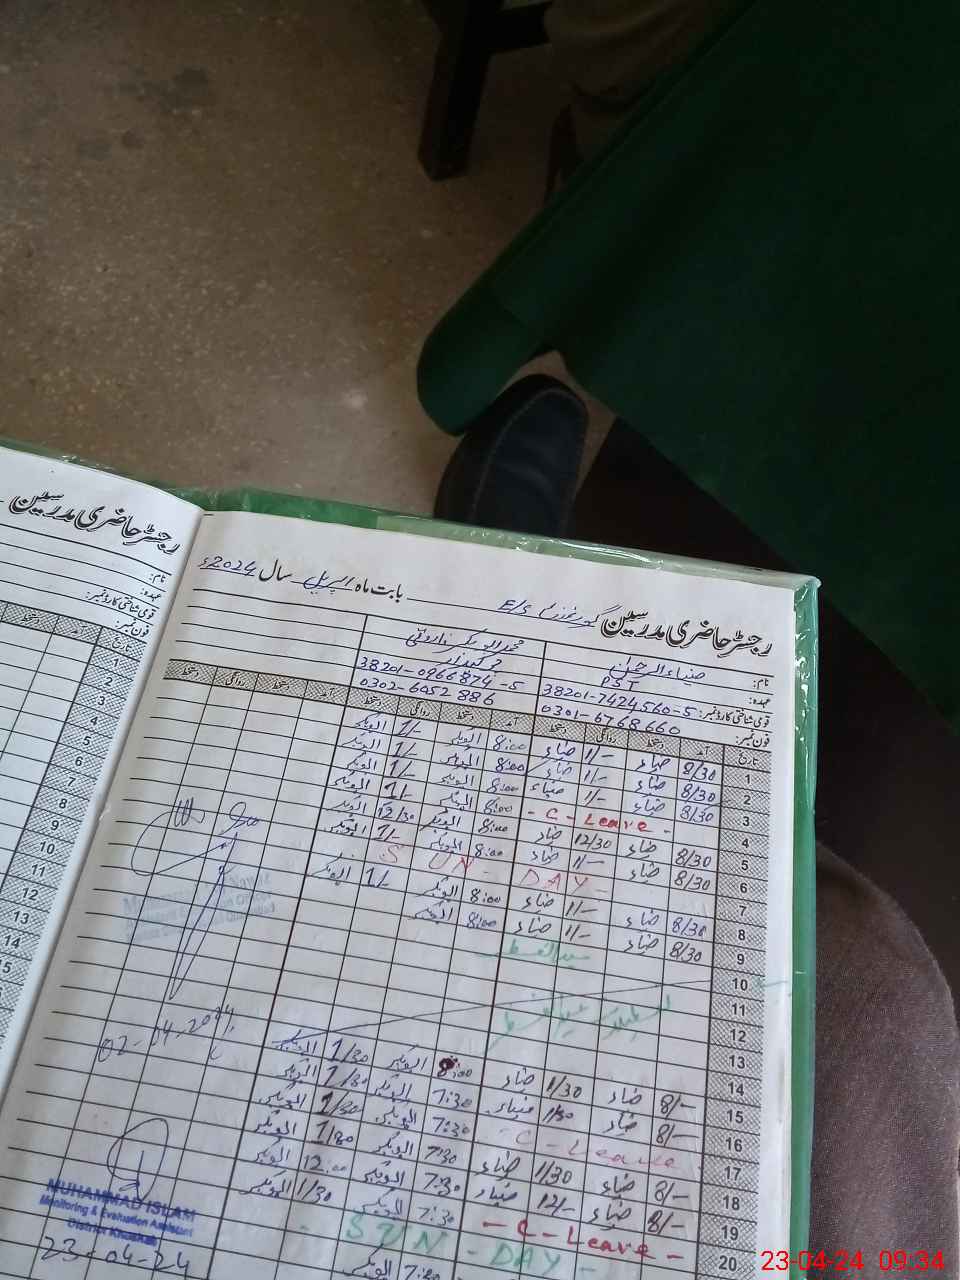 رجسٹر حاضری مدرسین
نام:
عہدہ:
قومی شناختی کارڈ نمبر:
فون نمبر:
تاریخ
آمد
دستخط
1
2
3
4
5
6
7
8
9
10
11
12
13
14
15
رجسٹر حاضری مدرسین E/S بابت ماہ اپریل سال 2024ء
نام: ضیاء الرحمان محمد ابوبکر فاروقی
عہدہ: PST چوکیدار
قومی شناختی کارڈ نمبر: 38201-7424560-5 38201-0966874-5
فون نمبر: 0301-6768660 0302-6052886
تاریخ آمد دستخط روانگی دستخط آمد دستخط روانگی دستخط آمد دستخط روانگی دستخط
1 8/30 ضیاء 1/- ضیاء 8:00 ابوبکر 1/- ابوبکر
2 8/30 ضیاء 1/- ضیاء 8:00 ابوبکر 1/- ابوبکر
3 8/30 ضیاء 1/- ضیاء 8:00 ابوبکر 1/- ابوبکر
4 - C - Leave - 8:00 ابوبکر 1/- ابوبکر
5 8/30 ضیاء 12/30 ضیاء 8:00 ابوبکر 12/30 ابوبکر
6 8/30 ضیاء 1/- ضیاء 8:00 ابوبکر 1/- ابوبکر
7 SUN - DAY -
8 8/30 ضیاء 1/- ضیاء 8:00 ابوبکر 1/- ابوبکر
9 8/30 ضیاء 1/- ضیاء 8:00 ابوبکر
10 عید الفطر
11
12
13
14
15 8/- ضیاء 1/30 ضیاء 8:00 ابوبکر 1/30 ابوبکر
16 8/- ضیاء 1/30 ضیاء 7:30 ابوبکر 1/30 ابوبکر
17 - C - Leave 7:30 ابوبکر 1/30 ابوبکر
18 8/- ضیاء 1/30 ضیاء 7:30 ابوبکر 1/30 ابوبکر
19 8/- ضیاء 12/- ضیاء 7:30 ابوبکر 12:00 ابوبکر
20 - C - Leave - 7:30 ابوبکر 1/30 ابوبکر
SUN - DAY -
7:30 ابوبکر
02-04-2024
MUHAMMAD ISLAM
Monitoring & Evaluation Assistant
District Khushab
23-04-24
23-04-24 09:34